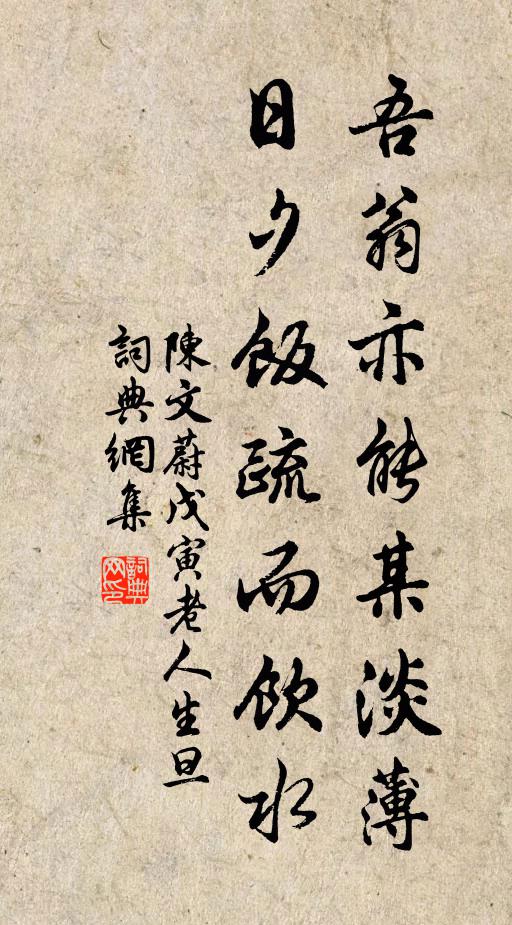 吾翁亦能某淡薄
日夕飯疏而飲水
陳文蔚戊寅老人生旦
詞典網集
詞典网印